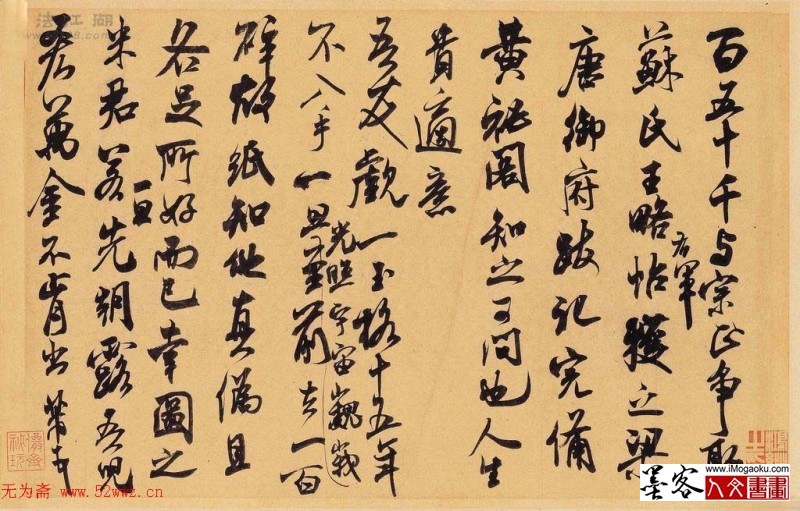 百五十千与宗正争取
蘇氏王略帖右軍獲之梁
唐御府跋记完備
黄秘閣知之可问也人生
貴適意
吾友覿一玉格十五年
不入手一旦光照宇宙巍峩至前去一百
碎故纸知他真偽且
各足所好而已幸圖之
米君若一旦先朝露吾兒
吝萬金不肯出芾頓首
墨客
www.iMogaoku.com
人文書畫
无为斋 www.52wwz.cn